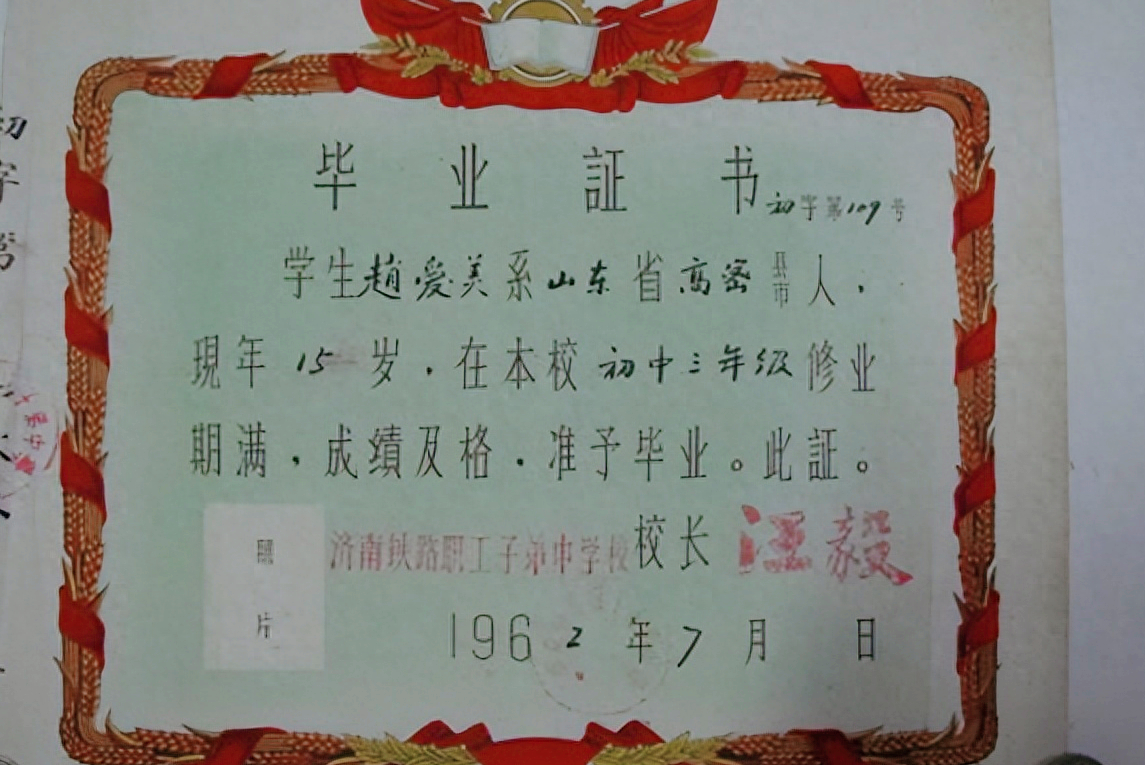 毕业証书
初字第109号
学生趙爱美系山东省高密县市人，
現年15岁，在本校初中三年级修业
期满，成績及格，准予毕业。此証。
照片
济南铁路职工子弟中学校
校长 汪毅
1962年7月 日